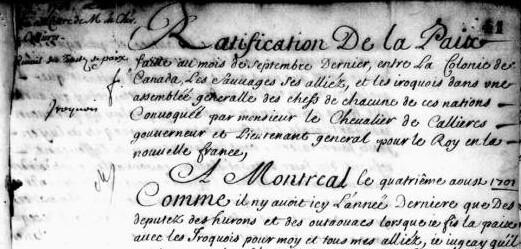 41
Ratification De la Paix
faitte au mois de septembre Dernier, entre La Colonie de
Canada, Les sauvages ses alliéz, et les iroquois dans une
assemblée generalle des chefs de chacune de ces nations
Convoquée par monsieur le Chevalier de Callieres
gouverneur et Lieutenant general pour le Roy en la
nouvelle france,
Iroquois
A Montreal le quatrième aoust 1701
Comme il ny avoit icy L'année Derniere que Des
deputez des hurons et des outaouacs lorsque je fis la paix
avec les Iroquois pour moy et tous mes alliéz, ie iugeay qu'il